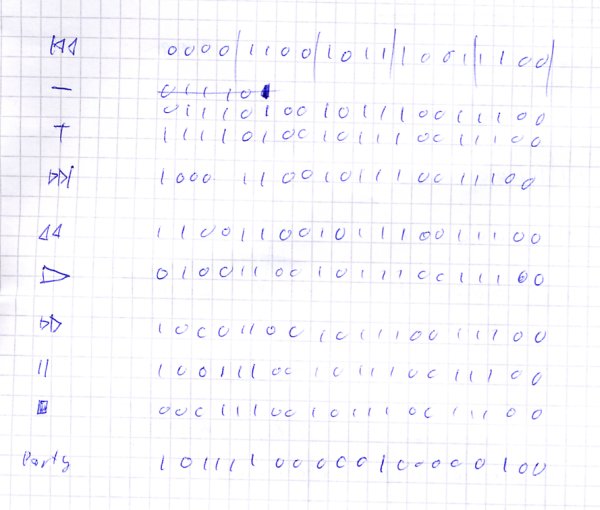 0000|1100|1011|1001|1100|
— 01110
01110100101110011100
+ 11110100101110011100
1000 110010111001 1100
11001100101110011100
01001100101110011100
10001100101110011100
|| 10011100101110011100
00011100101110011100
Party 10111100000100000100